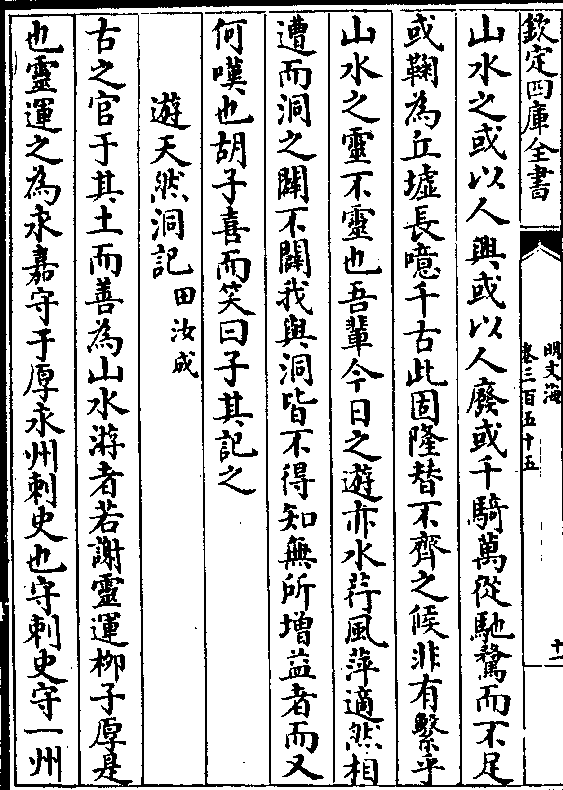 欽定四庫全書
明文海
卷三百五十五
十一
山水之或以人興或以人廢或千騎萬從馳騖而不足
或鞠為丘墟長噫千古此固隆替不齊之候非有繫乎
山水之靈不靈也吾輩今日之遊亦水荇風萍適然相
遭而洞之闢不闢我與洞皆不得知無所增益者而又
何嘆也胡子喜而笑曰子其記之
遊天然洞記 田汝成
古之官于其土而善為山水游者若謝靈運柳子厚是
也靈運之為永嘉守子厚永州刺史也守刺史守一州